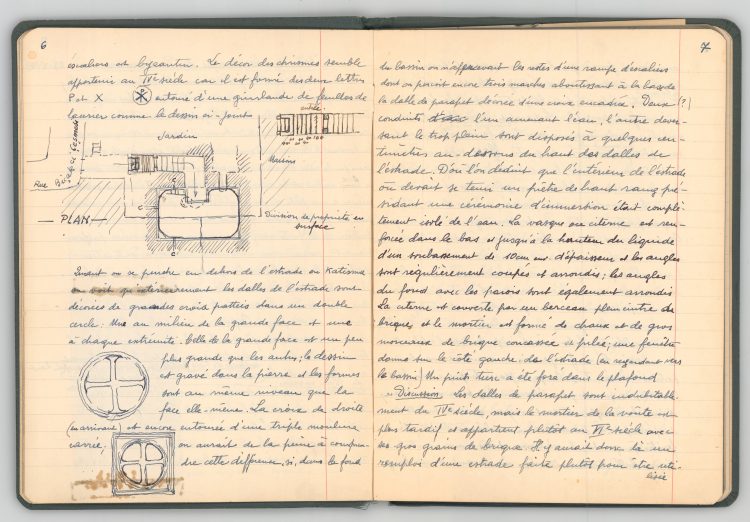 6
escaliers est byzantin. Le décor des chrismes semble
appartenir au IVe siècle car il est formé des deux lettres
P et X entouré d'une guirlande de feuilles de
laurier comme le dessin ci-joint
entrée
Jardin
Maisons
Rue
PLAN
Division de propriété en
surface
C
C
C'
Quand on se penche en dehors de l'estrade ou Katisma
on voit qu'intérieurement les dalles de l'estrade sont
décorées de grandes croix pattées dans un double
cercle: Une au milieu de la grande face et une
à chaque extrémité. Celle de la grande face est un peu
plus grande que les autres; le dessin
est gravé dans la pierre et les formes
sont au même niveau que la
face elle-même. La croix de droite
(en arrivant) est encore entourée d'une triple moulure
carrée, on aurait de la peine à compren-
dre cette différence, si, dans le fond
7
du bassin on n'appercevait les restes d'une rampe d'escaliers
dont on perçoit encore trois marches aboutissant à la base de
la dalle de parapet décorée d'une croix encadrée. Deux (?)
conduits l'un amenant l'eau, l'autre dever-
sant le trop plein sont disposés à quelques cen-
timètres au-dessous du haut des dalles de
l'estrade. D'où l'on déduit que l'intérieur de l'estrade
où devait se tenir un prêtre de haut rang pré-
sidant une cérémonie d'immersion était complè-
tement isolé de l'eau. La vasque ou citerne est ren-
forcée dans le bas et jusqu'à la hauteur du liquide
d'un soubassement de 10cm env. d'épaisseur et les angles
sont régulièrement coupés et arrondis; les angles
du fond avec les parois sont également arrondis
La citerne est couverte par un berceau plein cintre de
briques et le mortier est formé de chaux et de gros
morceaux de brique concassée et pilée; une fenêtre
donne sur le côté gauche de l'estrade (en regardant vers
le bassin) Un puits turc a été foré dans le plafond
Discussion. Les dalles de parapet sont indubitable-
ment du IVe siècle, mais le mortier de la voûte est
plus tardif et appartient plutôt au VIe siècle avec
ses gros grains de brique. Il y aurait donc là un
remploi d'une estrade faite plutôt pour être uti-
lisée